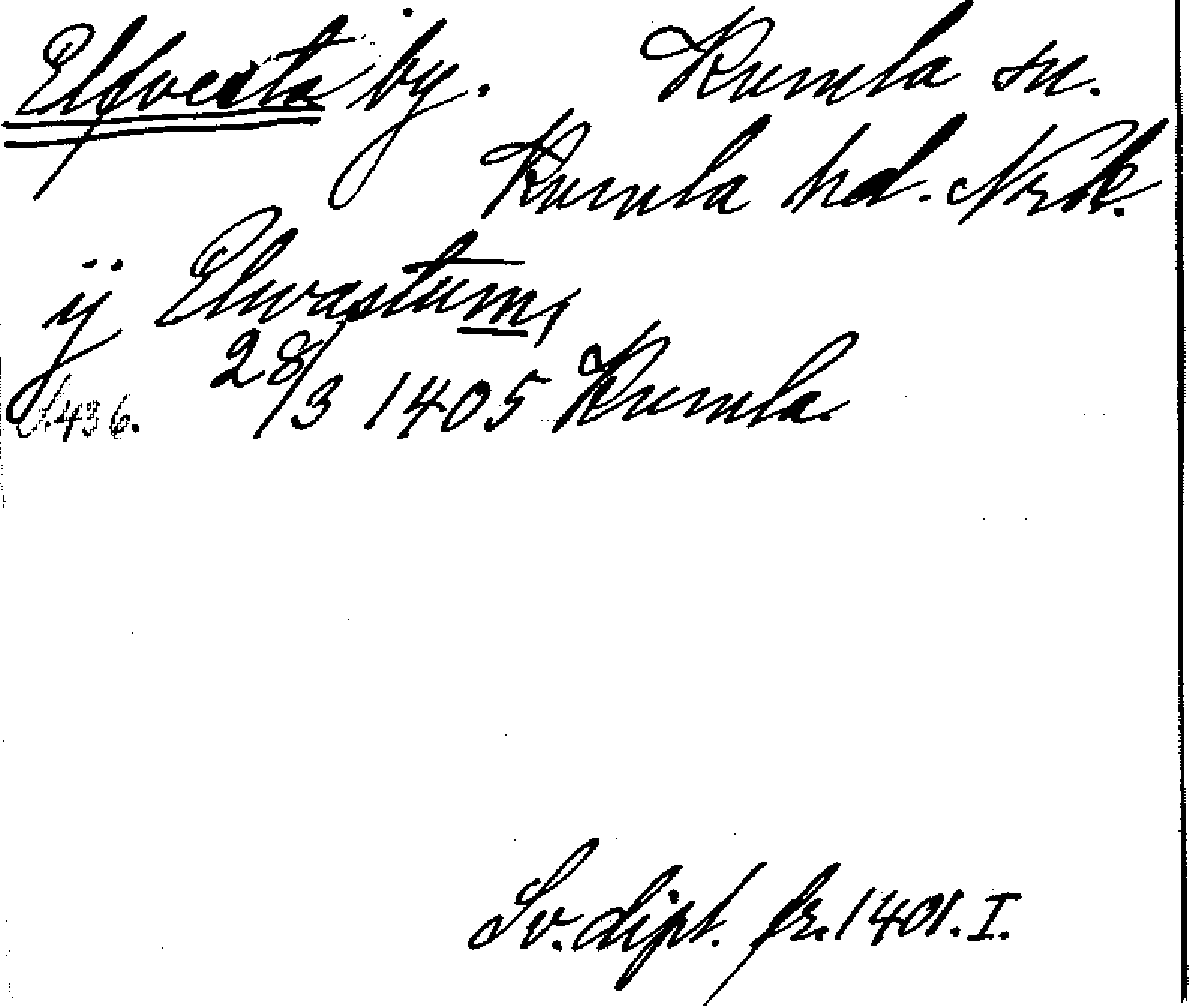 Elfvesta by. Kumla sn.
Kumla hd. Nrk.
ij Elwastum,
S.436. 28/3 1405 Kumla.
Sv. dipl. fr. 1401. I.